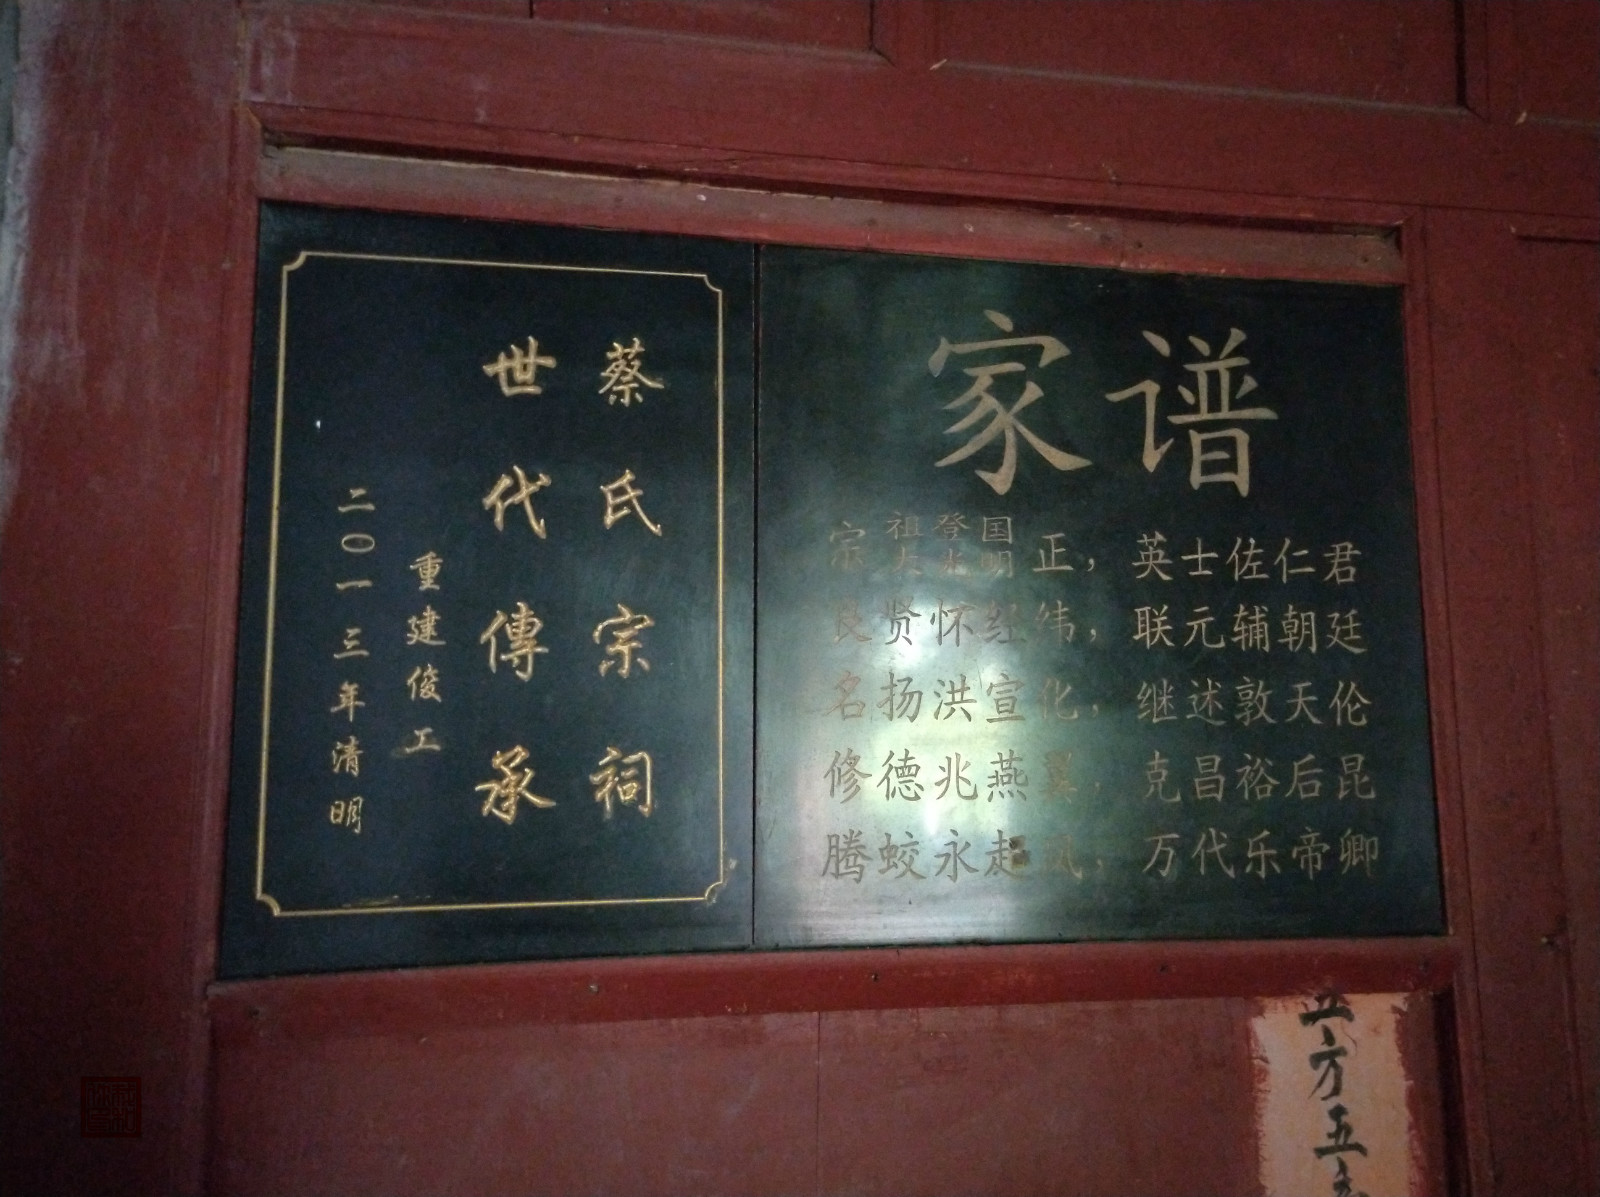 蔡氏宗祠
世代傳承
重建俊工
二〇一三年清明
家谱
祖登国
宗大永明正，英士佐仁君
良贤怀经纬，联元辅朝廷
名扬洪宣化，继述敦天伦
修德兆燕翼，克昌裕后昆
腾蛟永起凤，万代乐帝卿
五方五